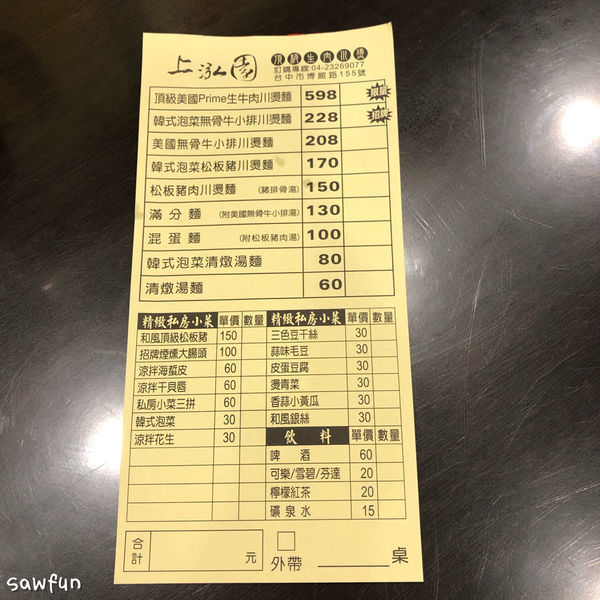 上泓園
頂級生牛肉川燙
訂購專線:04-23269077
台中市博館路155號
頂級美國Prime生牛肉川燙麵 598
韓式泡菜無骨牛小排川燙麵 228 招牌
美國無骨牛小排川燙麵 208
韓式泡菜松板豬川燙麵 170
松板豬肉川燙麵 (豬排骨湯) 150
滿分麵 (附美國無骨牛小排湯) 130
混蛋麵 (附松板豬肉湯) 100
韓式泡菜清燉湯麵 80
清燉湯麵 60
精緻私房小菜 單價 數量
和風頂級松板豬 150
招牌煙燻大腸頭 100
涼拌海蜇皮 60
涼拌干貝唇 60
私房小菜三拼 60
韓式泡菜 30
涼拌花生 30
精緻私房小菜 單價 數量
三色豆干絲 30
蒜味毛豆 30
皮蛋豆腐 30
燙青菜 30
香蒜小黃瓜 30
和風銀絲 30
飲料 單價 數量
啤酒 60
可樂/雪碧/芬達 20
檸檬紅茶 20
礦泉水 15
合計 元
外帶 桌
sawfun